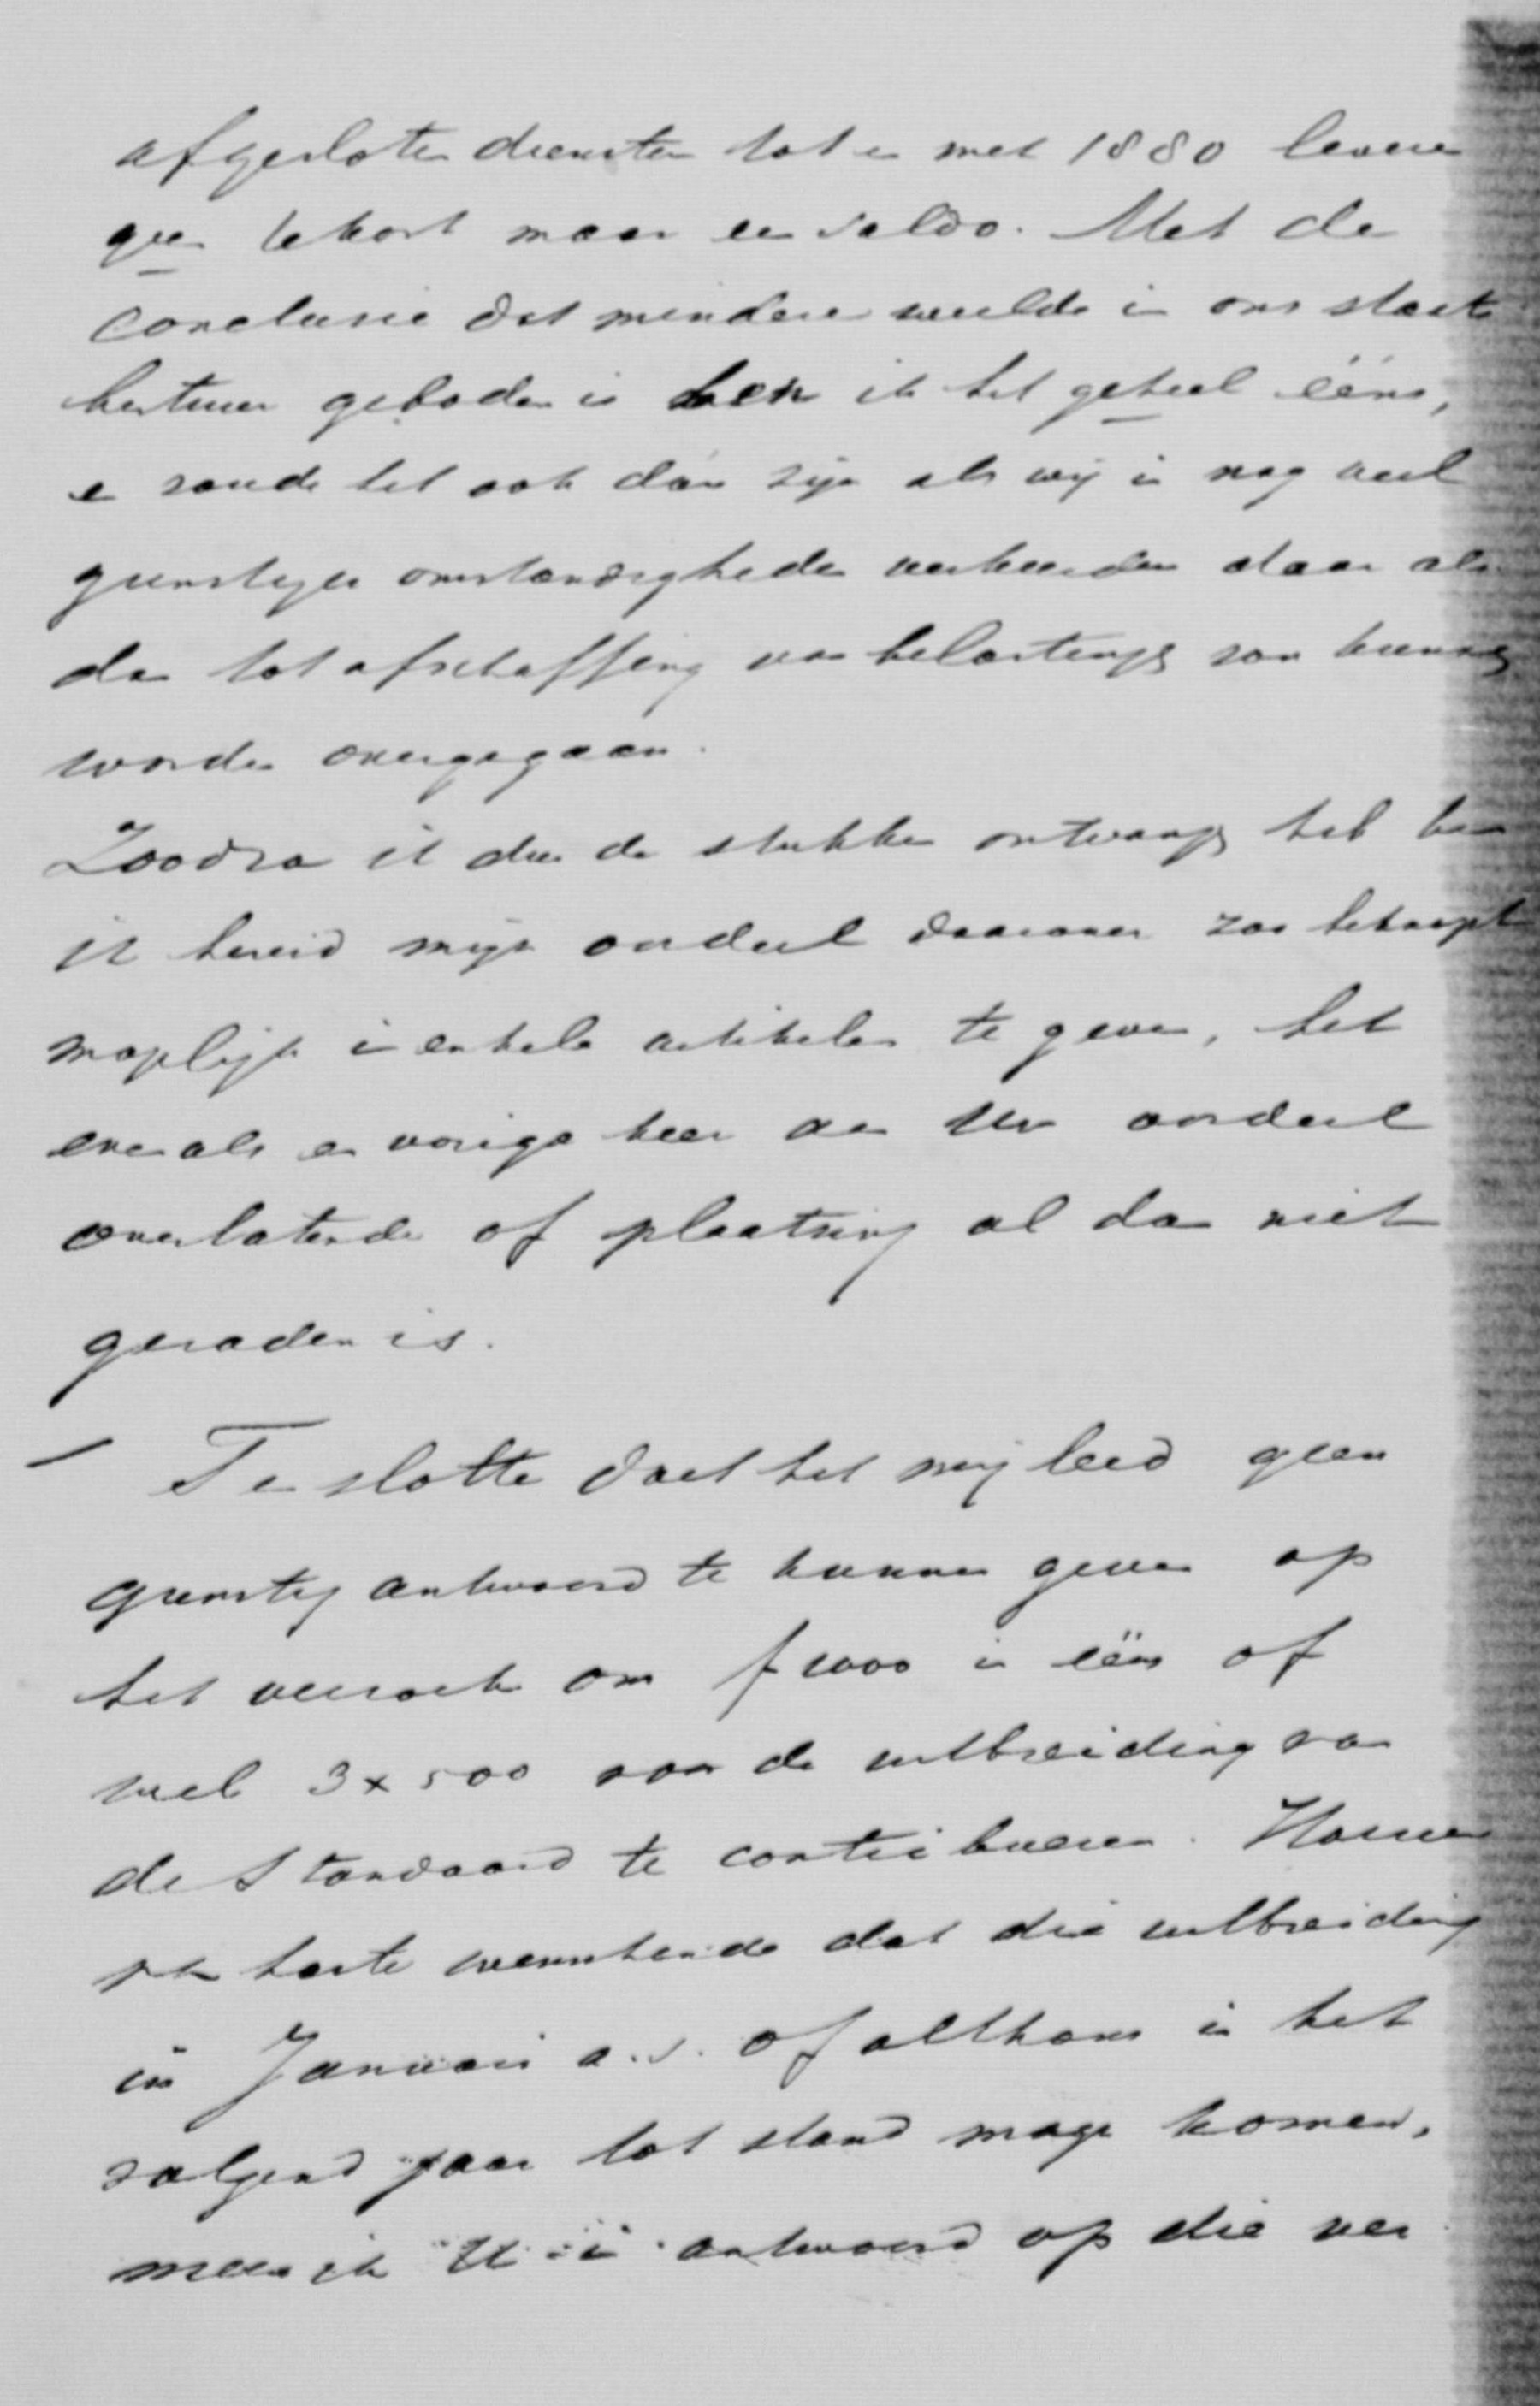 afgesloten diensten tot en met 1880 leveren
geen tekort maar een saldo. Met de
conclusie dat mindere weelde in ons staats
bestuur geboden is ben ik het geheel ééns,
en zoude het ook dán zijn als wij in nog veel
gunstiger omstandigheden verkeerden daar als
dan tot afschaffing van belastingen zou kunnen
worden overgegaan.
Zoodra ik dus de stukken ontvangen heb ben
ik bereid mijn oordeel daarover zoo beknopt
mogelijk in enkele artikelen te geven, het
evenals en vorige keer aan Uw oordeel
overlatende of plaatsing al dan niet
geraden is.
Ten slotte doet het mij leed geen
gunstig antwoord te kunnen geven op
het verzoek om f 1000 in ééns of
wel 3 x 500 voor de uitbreiding van
de Standaard te contribueeren.
harte wenschende dat die uitbreiding
in Januari a.s. of althans in het
volgend jaar tot stand moge komen,
meen ik U in antwoord op die ver